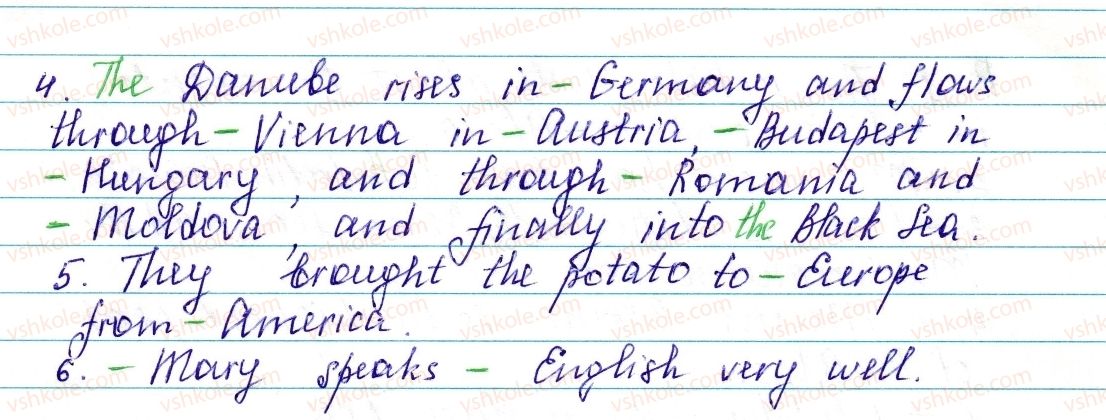 4. The Danube rises in – Germany and flows
through – Vienna in – Austria, – Budapest in
– Hungary, and through – Romania and
– Moldova, and finally into the Black Sea.
5. They brought the potato to – Europe
from – America.
6. – Mary speaks – English very well.